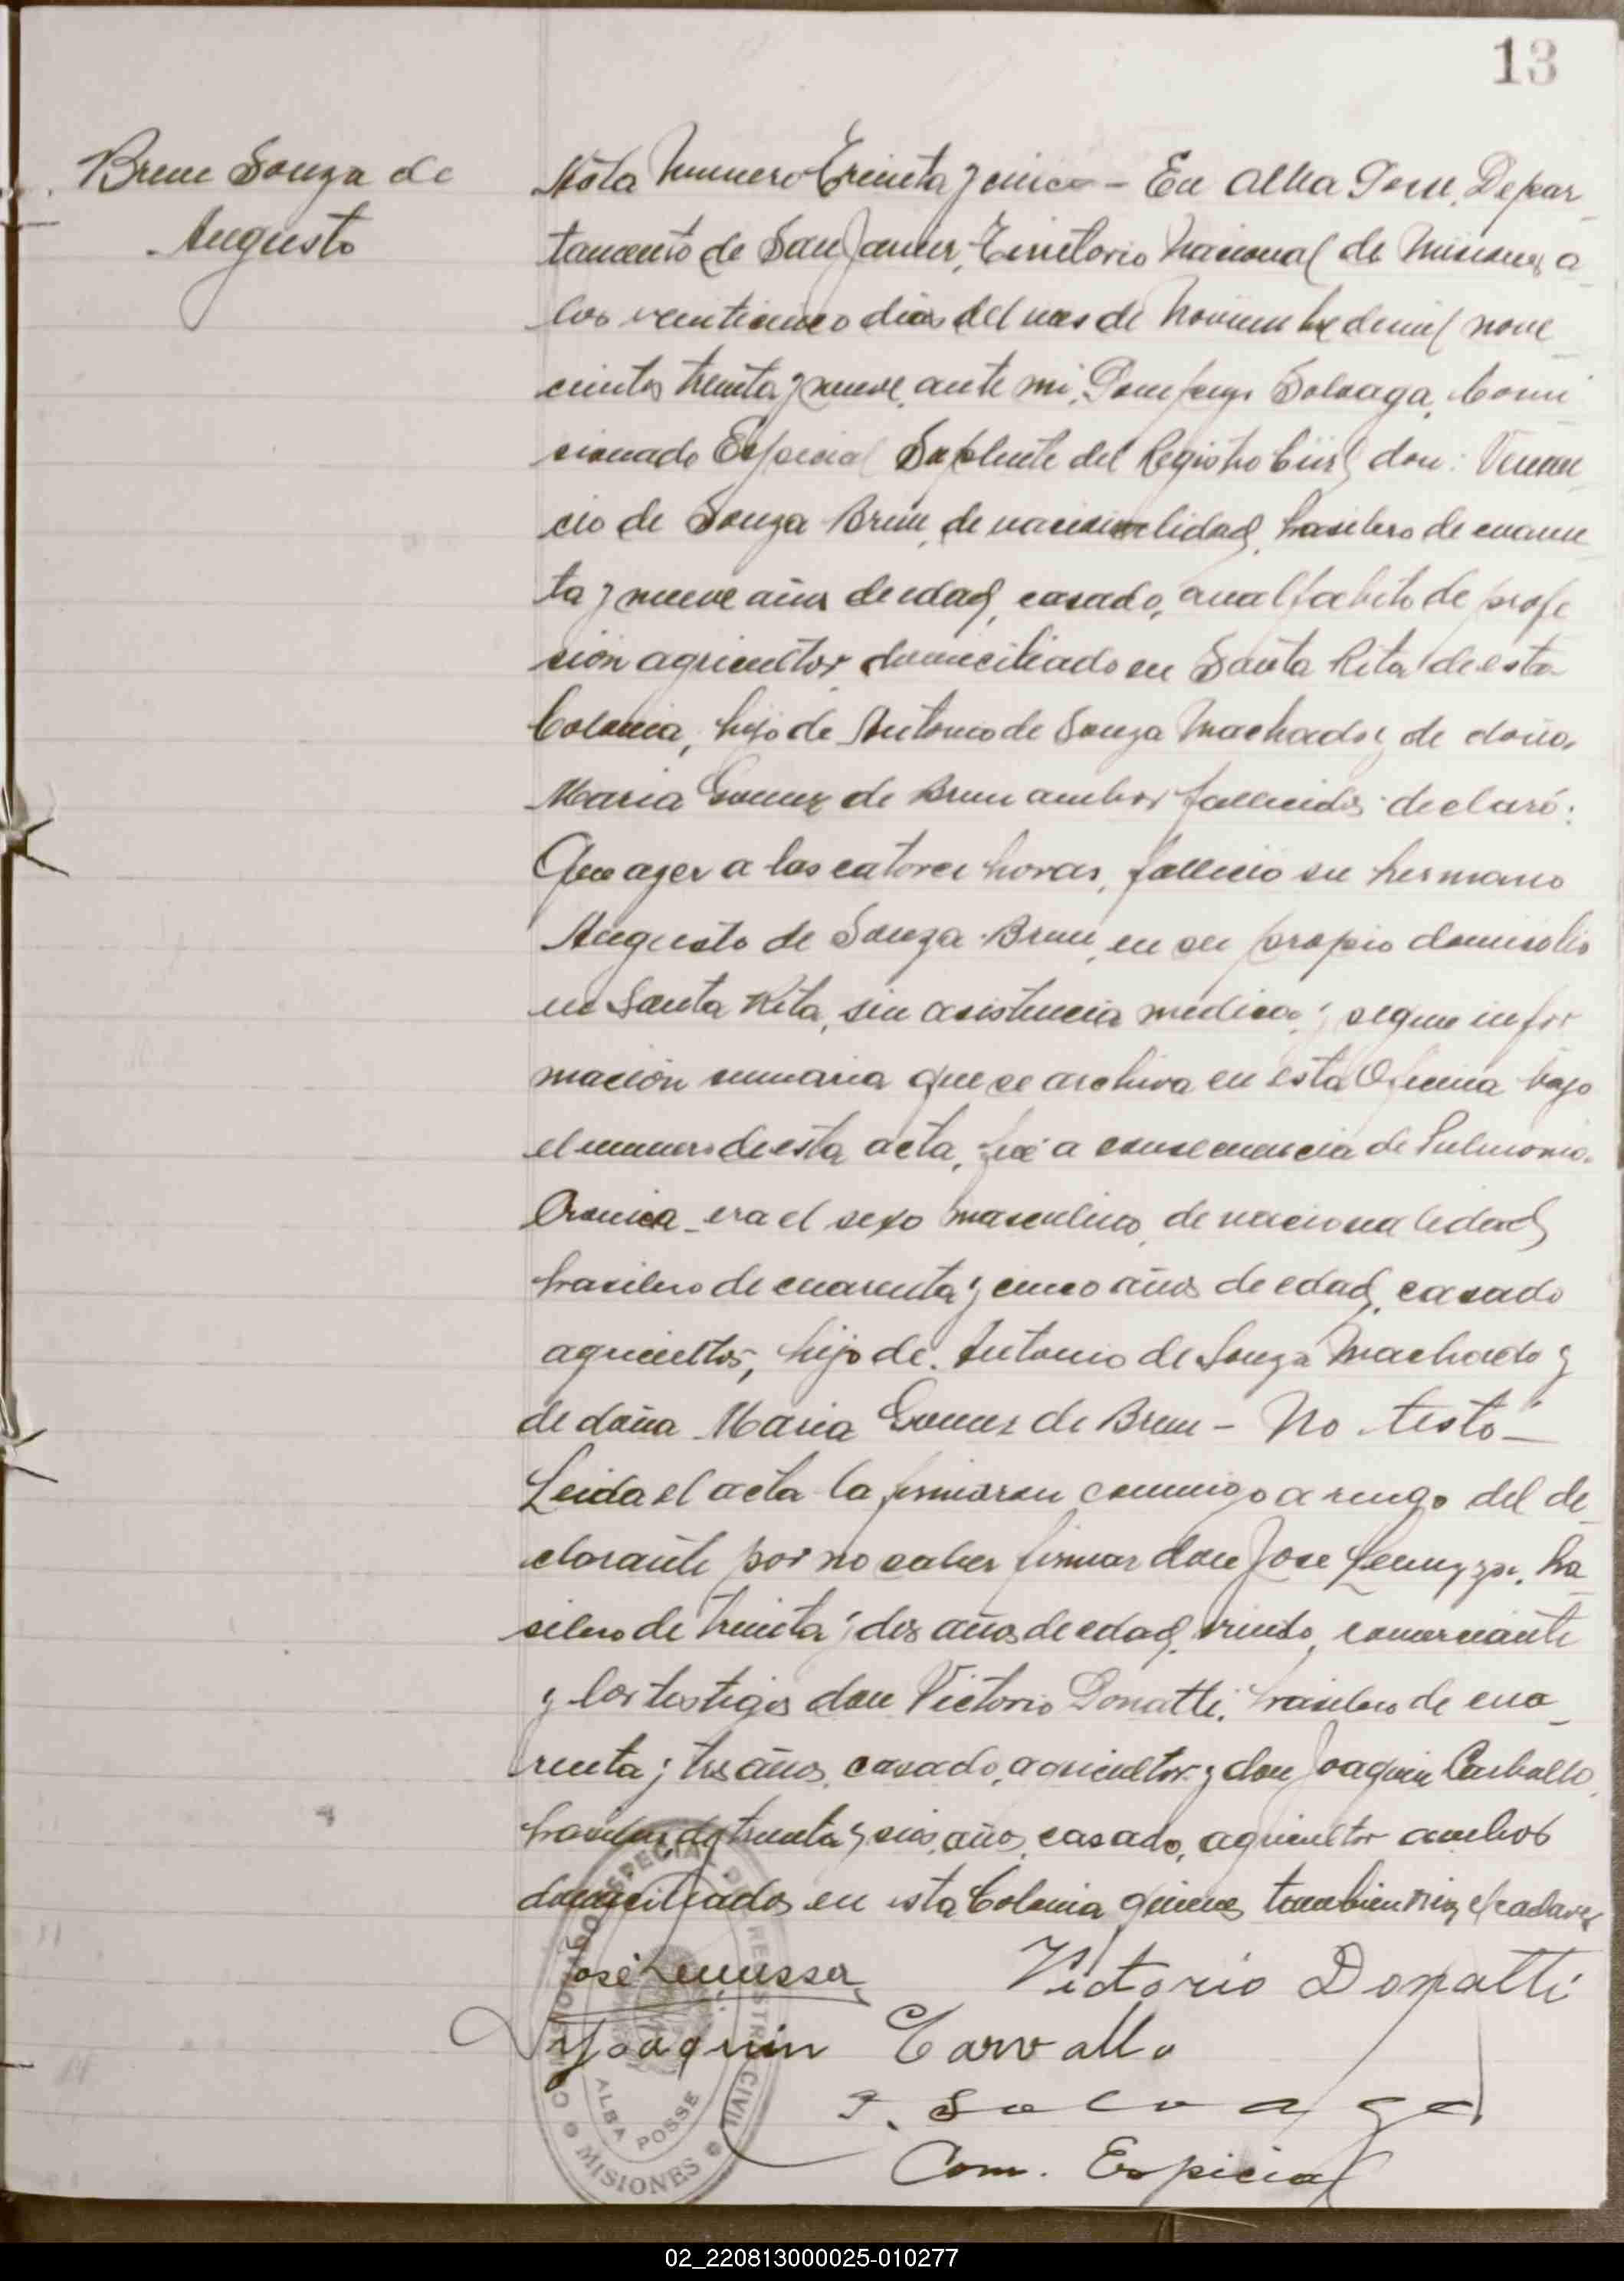 13
Brum Souza de
Augusto
Acta Numero Treinta y cinco - En Alba Posse, Depar
tamento de San Javier, Territorio Nacional de Misiones, a
los veinticinco dias del mes de Noviembre de mil nove
cientos treinta y nueve, ante mi, Pompeyo Salvaga, Comi
sionado Especial Suplente del Registro Civil, don: Venan
cio de Souza Brum, de nacionalidad, brasilero de cuaren
ta y nueve años de edad, casado, analfabeto de profe
sión agricultor domiciliado en Santa Rita de esta
Colonia, hijo de Antonio de Souza Machado y de doña
Maria Gomez de Brum ambos fallecidos declaró:
Que ayer a las catorce horas, falleció su hermano
Augusto de Souza Brum, en su propio domicilio
en Santa Rita, sin asistencia medica y segun infor
mación sumaria que se archiva en esta Oficina bajo
el numero de esta acta, fué a consecuencia de Pulmonia
Cronica - era el sexo masculino, de nacionalidad
brasilero de cuarenta y cinco años de edad, casado
agricultor, hijo de Antonio de Souza Machado y
de doña Maria Gomez de Brum - No testó -
Leida el acta la firmaron conmigo a ruego del de
clarante por no saber firmar don Jose, bra
silero de treinta y dos años de edad, viudo, comerciante
y los testigos don Victorio Donatti, brasilero de cua
renta y tres años, casado, agricultor y don Joaquin Carballo,
brasilero de treinta y seis años, casado, agricultor ambos
domiciliados en esta Colonia quienes tambien el cadaver
José
Victorio Donatti
Joaquin Carvallo
P. Salvaga
Com. Especial
COMISIONADO ESPECIAL DEL REGISTRO CIVIL
ALBA POSSE
MISIONES
02_220813000025-010277